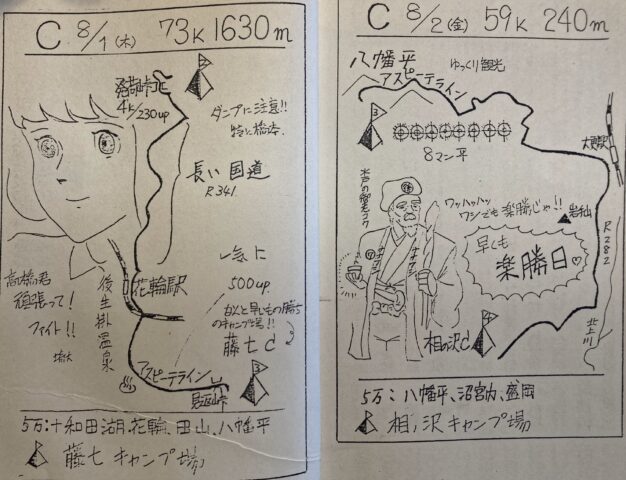 C 8/1(木) 73K 1630m
2
4K/230up
ダンプに注意!!
特に橋本.
長い国道
R341
一気に
500up.
のキャンプ場!!
藤七C
花輪駅
後生掛温泉
頑張って!
ファイト!!
アスピーテライン
見返峠
3
5万:十和田湖,花輪,田山,八幡平
藤七キャンプ場
C 8/2(金) 59K 240m
八幡平
アスピーテライン
ゆっくり観光
3
8マン平
大更駅
水戸の御老コク
ワッハッハッ
ワシでも楽勝じゃ!!
岩手山
早くも
楽勝日♡
R282
北上川
相の沢C
4
5万:八幡平,沼宮内,盛岡
相ノ沢キャンプ場